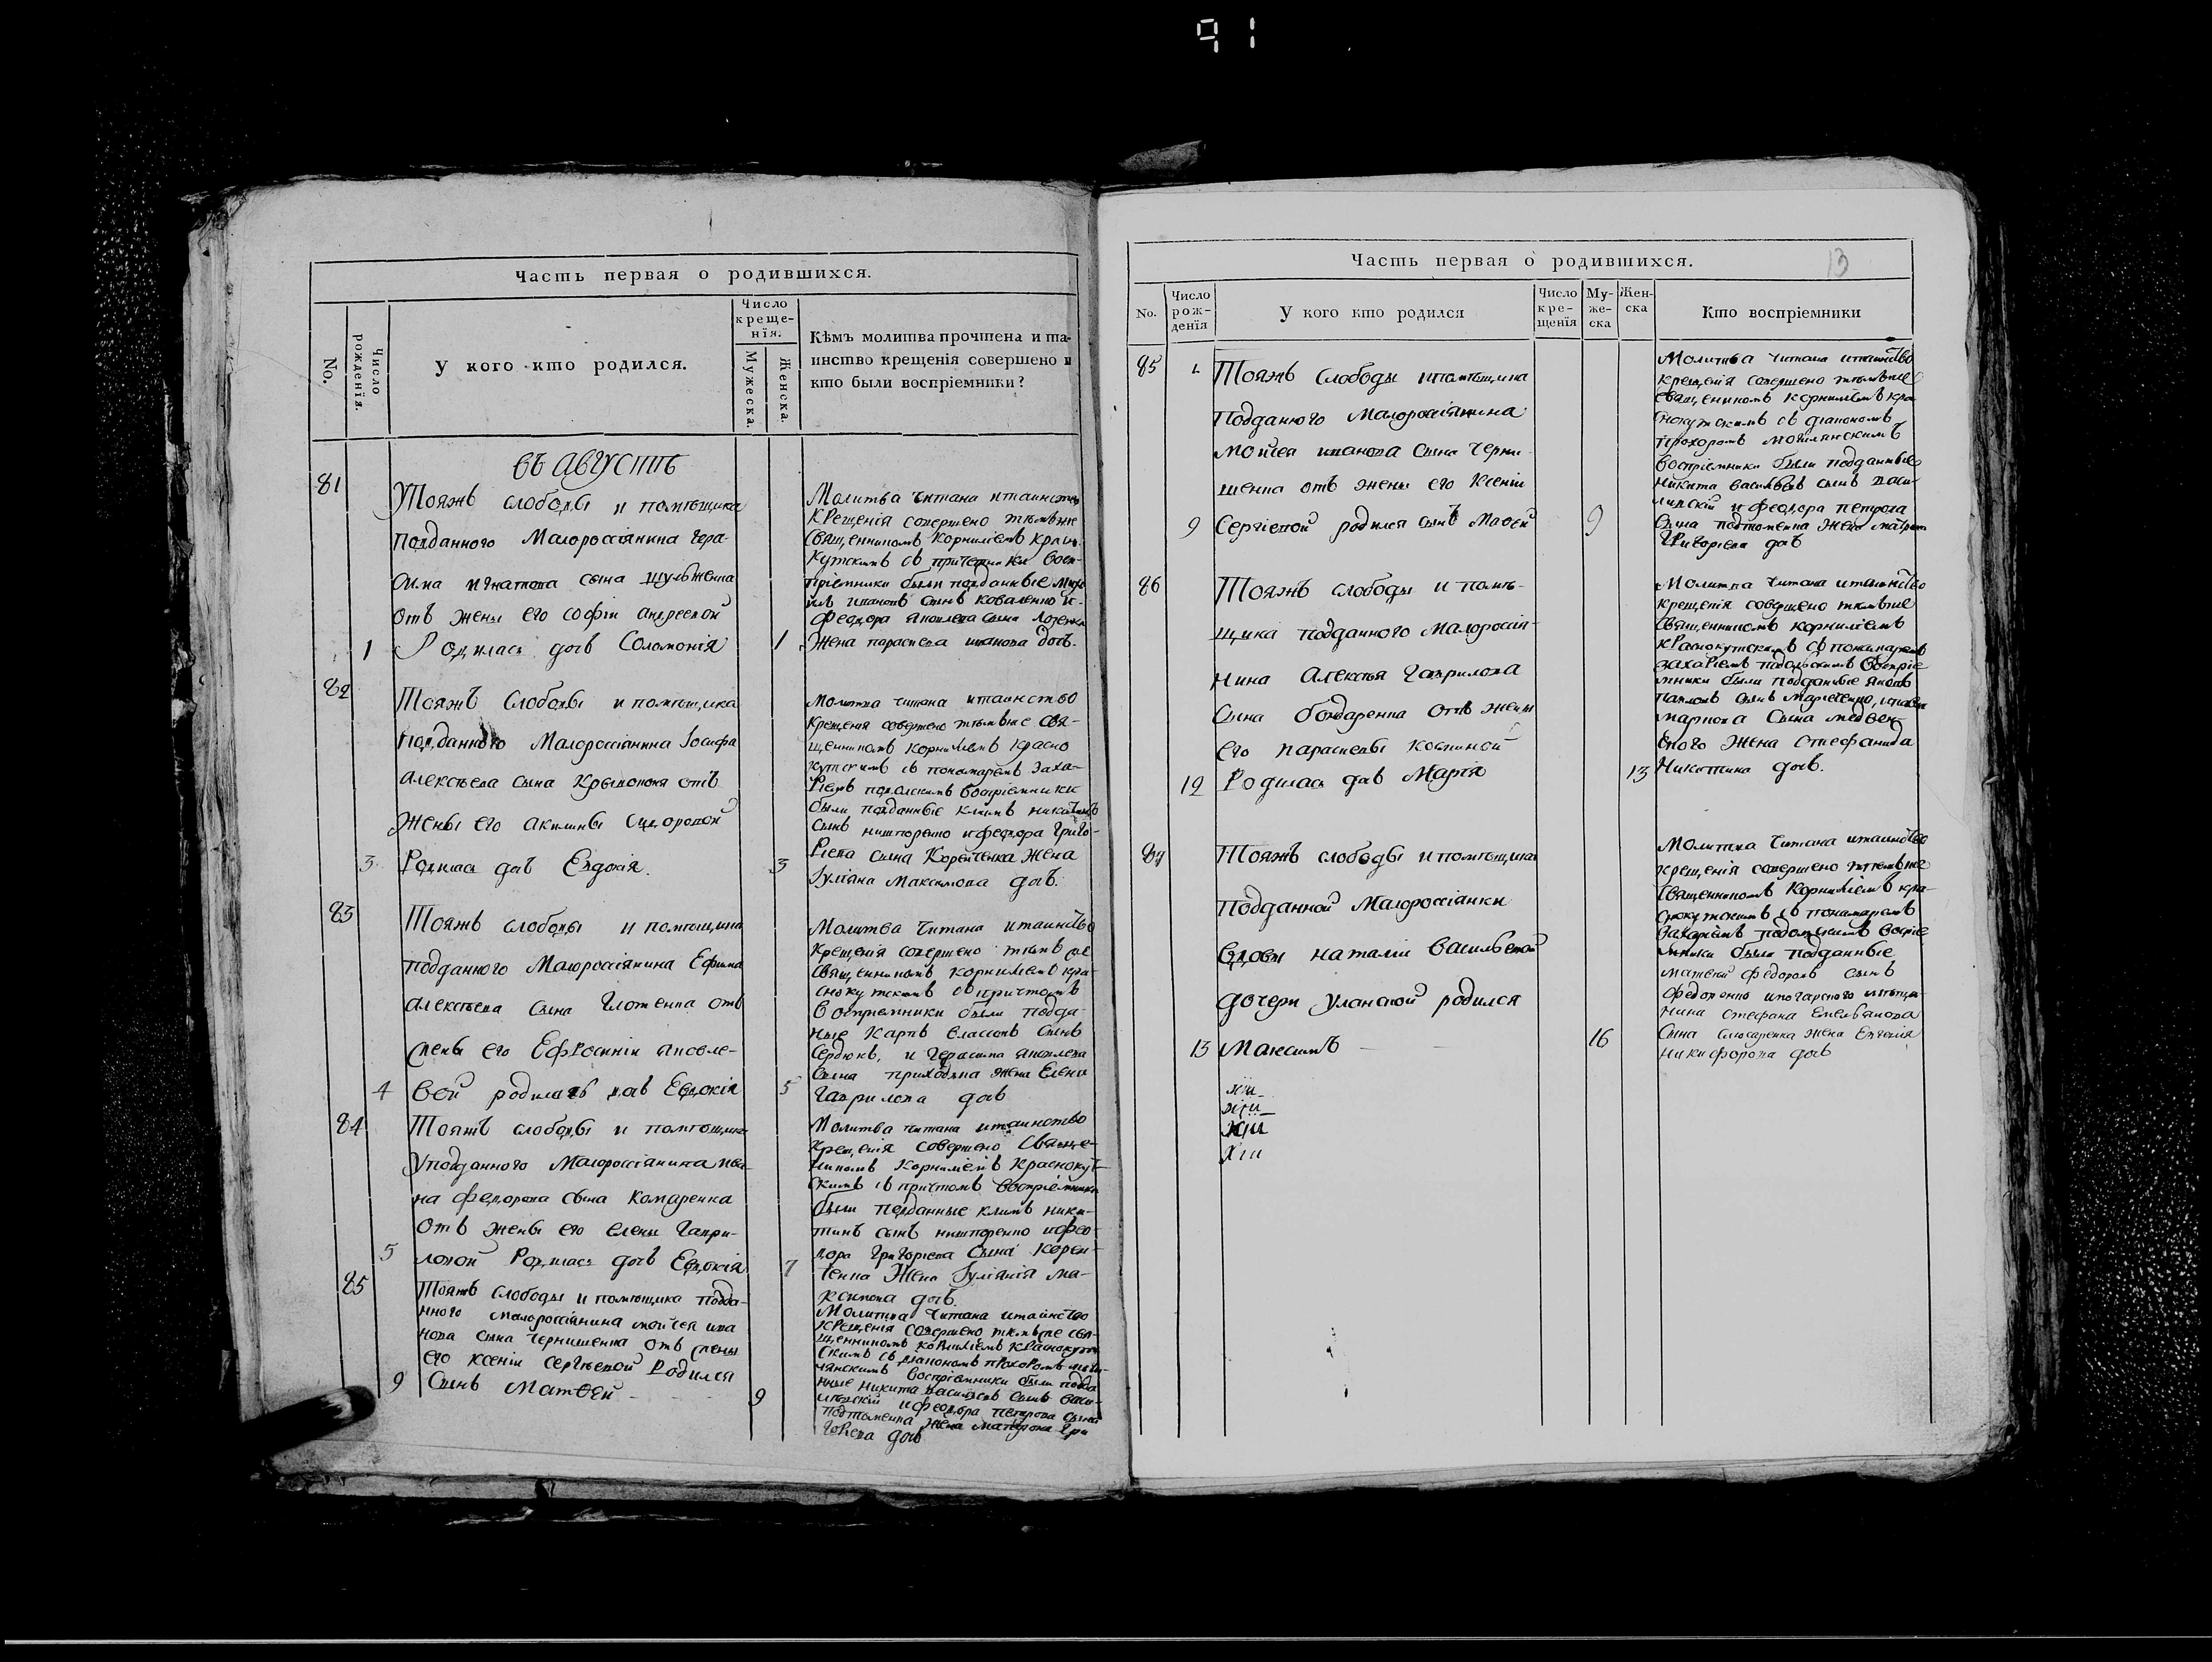 91
Часть первая о родившихся.
No.
Число рожденія.
У кого кто родился.
Число креще-
нія.
Мужеска.
Женска.
Кѣмъ молитва прочтена и та-
инство крещенія совершено и
кто были воспріемники?
Въ Августѣ
81
Тояжъ слободы и помѣщика
подданного Малороссіянина Гера-
сима Игнатова сына Шульженка
отъ жены его Софіи Андреевой
1 Родилась дочь Соломонія 1
Молитва читана и таинство
Крещенія совершено тѣмъ же
Священникомъ Корниліемъ Красно-
Кутскимъ съ причетники Вос-
пріемники были подданные Миха
илъ Ивановъ сынъ Коваленко и
Феодора Яковлева сына
Жена Параскева Иванова дочь.
82
Тояжъ Слободы и помѣщика
подданного Малороссіянина Іосифа
Алексѣева сына Кривоконя отъ
Жены его Акилины Сидоровой
3 Родилась дочь Евдокія. 3
Молитва читана и таинство
Крещенія совершено тѣмъ же Свя-
щенникомъ Корниліемъ Красно
кутскимъ съ пономаремъ Заха-
ріемъ Подолскимъ Воспріемники
были подданные Климъ Никитинъ
сынъ Нишпоренко и Феодора Григо-
ріева сына Корейченка Жена
Іуліана Максимова дочь.
83
Тояжъ слободы и помѣщика
подданного Малороссіянина Ефима
Алексѣева сына Глотенка отъ
жены его Ефросиніи Яковле-
4 вой родилась дочь Евдокія 5
Молитва Читана и таинство
Крещенія совершено тѣмъ же
Священникомъ Корниліемъ Кра-
снокутскимъ съ причтомъ
Воспріемники были подда-
ные Карпъ Власовъ Сынъ
Сердюкъ, и Герасима Яковлева
Сына Приходька жена Елена
Гаврилова дочь
84
Тояжъ слободы и помѣщика
У подданного Малороссіянина Ива-
на Федорова сына Комаренка
отъ жены его Елены Гаври-
5 ловой Родилась дочь Евдокія 7
Молитва читана и таинство
Крещенія совершено Священ-
никомъ Корниліемъ Краснокут-
скимъ съ причтомъ Воспріемники
были подданные Климъ Ники-
тинъ сынъ Нишпоренко и Фео-
дора Григоріева Сына Корей-
ченка Жена Іуліанія Ма-
ксимова дочь.
85
Тояжъ слободы и помѣщика подда-
нного малороссіянина Мойсея Ива
нова сына Чернишенка отъ жены
его Ксеніи Сергѣевой Родился
9 Сынъ Матѳей 9
Молитва Читана и таинство
Крещенія совершено тѣмъ же свя-
щенникомъ Корниліемъ Краснокут
скимъ съ діакономъ Прохоромъ Моги-
лянскимъ Воспріемники были подда
нные Никита Васильевъ Сынъ Васи-
ливскій и Феодора Петрова сына
Подтоменка Жена Матрона Гри
горіева дочь
Часть первая о родившихся.
13
No.
Число
рож-
денія
У кого кто родился
Число
кре-
щенія
Му-
же-
ска
Жен-
ска
Кто воспріемники
85
Тояжъ слободы и помѣщика
Подданного Малороссіянина
Мойсея Иванова Сына Черни-
шенка отъ жены его Ксеніи
9 Сергіевой родился сынъ Матѳей 9
Молитва читана и таинство
крещенія совершено тѣмъ же
Священникомъ Корниліемъ Кра
снокутскимъ съ діакономъ
Прохоромъ Могилянскимъ
Воспріемники были подданные
Никита Васильевъ сынъ Васи-
ливскій и Феодора Петрова
Сына Подтоменка Жена Матрона
Григоріева дочь
86
Тояжъ слободы и помѣ-
щика подданного Малоросія-
нина Алексѣя Гаврилова
Сына Бондаренка отъ жены
его Параскевы Косминой
12 Родилась дочь Марія 13
Молитва Читана и таинство
крещенія совершено тѣмъ же
Священникомъ Корниліемъ
Краснокутскимъ съ пономаремъ
Захаріемъ Подолскимъ Воспріе
мники были подданные Яковъ
Павловъ сынъ
Маркова Сына Медвен-
ского Жена Стефанида
Никитина дочь.
87
Тояжъ слободы и помѣщика
Подданной Малороссіянки
Вдовы Наталіи Васильевой
дочери Уланской родился
13 Максимъ 16
Молитва Читана и таинство
крещенія совершено тѣмъ же
Священникомъ Корниліемъ Кра-
снокутскимъ съ пономаремъ
Захаріемъ Подолскимъ Воспріе
мники были подданные
Матвей Федоровъ сынъ
Федоренко
Стефана Емельянова
Сына Слюсаренка Жена Евгенія
Никифорова дочь